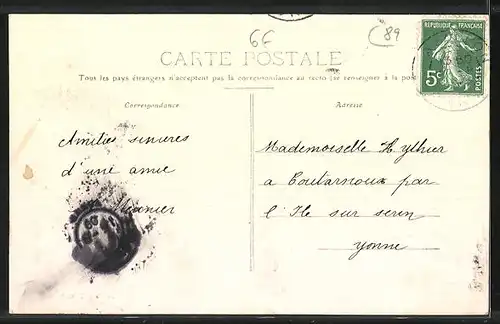 66
C89
CARTE POSTALE
Tous les pays étrangers n'acceptent pas la correspondance au recto (se renseigner à la poste)
REPUBLIQUE FRANÇAISE
5c
POSTES
Correspondance
Adresse
Amitiés sincères
d'une amie
Mademoiselle
a Coutarnoux par
l'Ile sur serein
Yonne